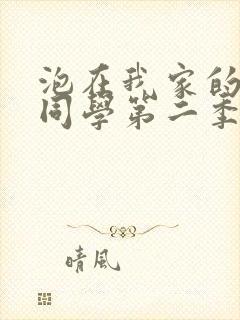 泡在我家的
同學第二季
晴風